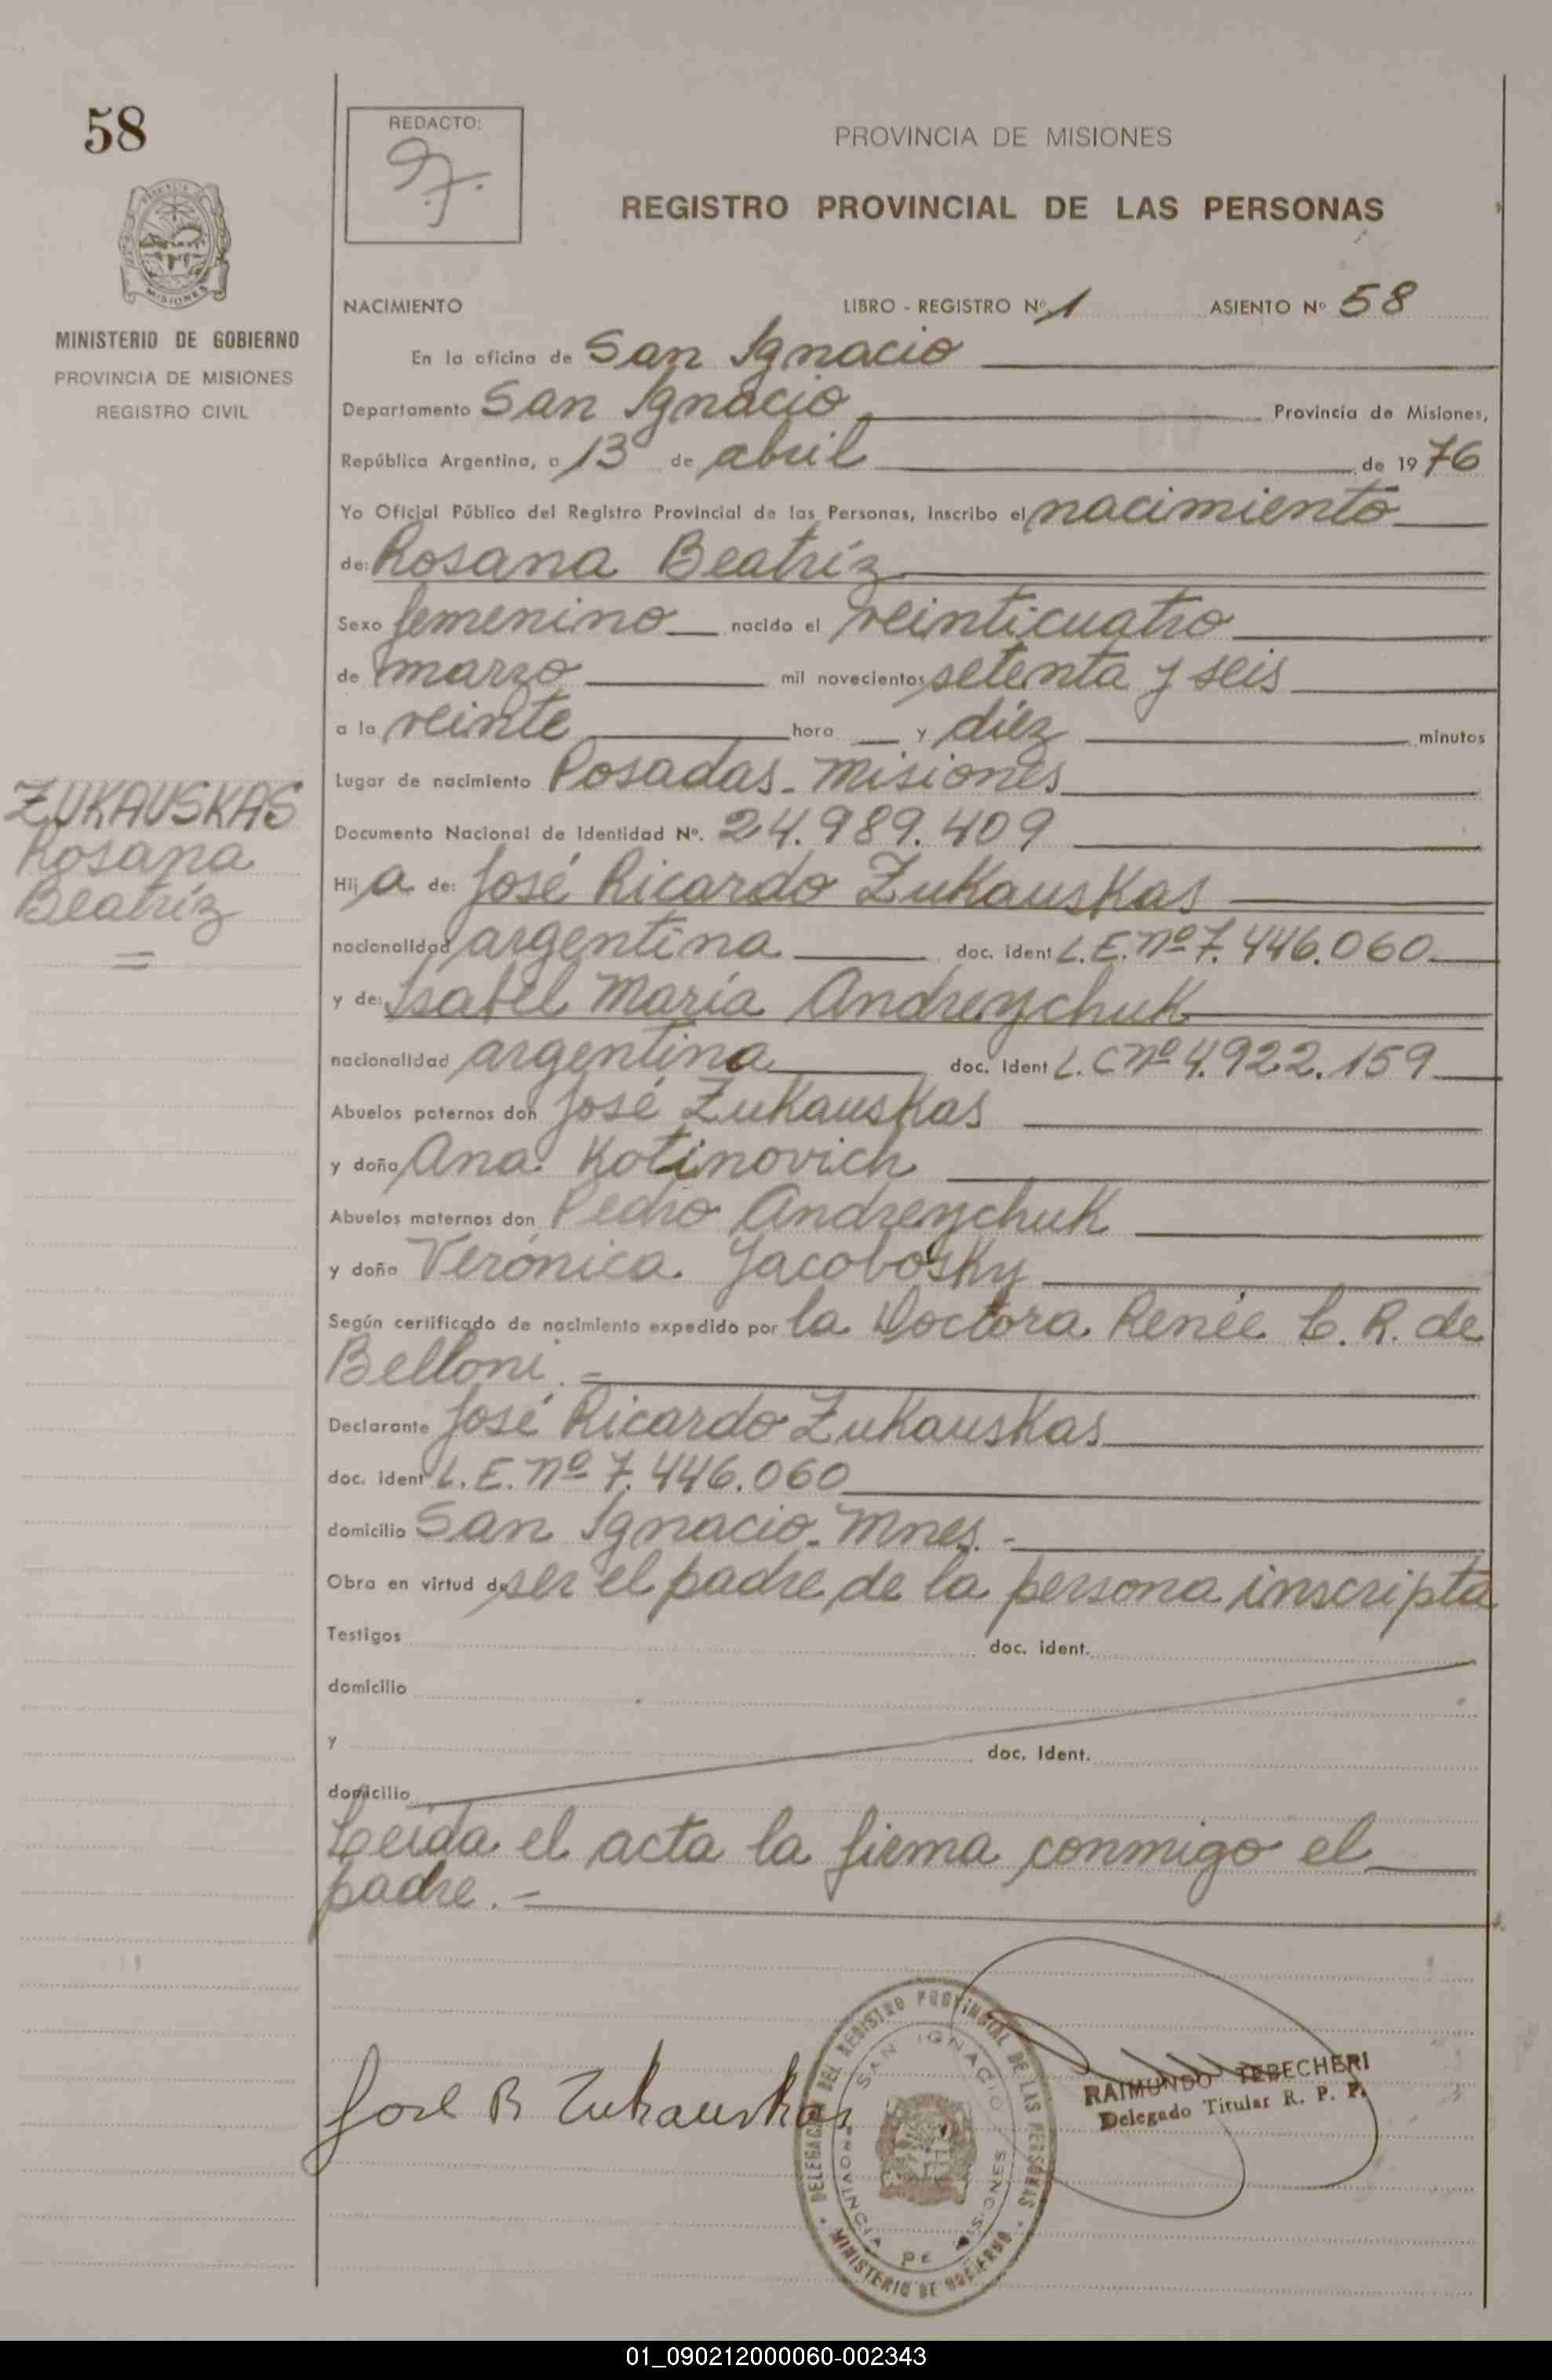 58
REDACTO:
PROVINCIA DE MISIONES
REGISTRO PROVINCIAL DE LAS PERSONAS
MISIONES
MINISTERIO DE GOBIERNO
PROVINCIA DE MISIONES
REGISTRO CIVIL
NACIMIENTO LIBRO - REGISTRO Nº 1 ASIENTO Nº 58
En la oficina de San Ignacio
Departamento San Ignacio Provincia de Misiones,
República Argentina, a 13 de abril de 1976
Yo Oficial Público del Registro Provincial de las Personas, inscribo el nacimiento
de: Rosana Beatríz
Sexo femenino nacido el veinticuatro
de marzo mil novecientos setenta y seis
a la veinte hora y diéz minutos
Lugar de nacimiento Posadas - Misiones
ZUKAUSKAS
Rosana
Beatríz
Documento Nacional de Identidad Nº. 24.989.409
Hija de: José Ricardo Zukauskas
nacionalidad argentina doc. ident L.E. nº 7.446.060
y de: Isabel María Andreychuk
nacionalidad argentina doc. Ident L.C nº 4.922.159
Abuelos paternos don José Zukauskas
y doña Ana Kotinovich
Abuelos maternos don Pedro Andreychuk
y doña Verónica Jacobosky
Según certificado de nacimiento expedido por la Doctora Renée C. R. de
Belloni. =
Declarante José Ricardo Zukauskas
doc. ident L.E. nº 7.446.060
domicilio San Ignacio - Mnes. -
Obra en virtud de ser el padre de la persona inscripta
Testigos doc. ident.
domicilio
y doc. Ident.
domicilio
Leída el acta la firma conmigo el
padre. -
José R Zukauskas
DELEGACION DEL REGISTRO PROVINCIAL DE LAS PERSONAS
SAN IGNACIO
PROVINCIA DE MISIONES
MINISTERIO DE GOBIERNO
RAIMUNDO TEBECHERI
Delegado Titular R. P. P.
01_090212000060-002343